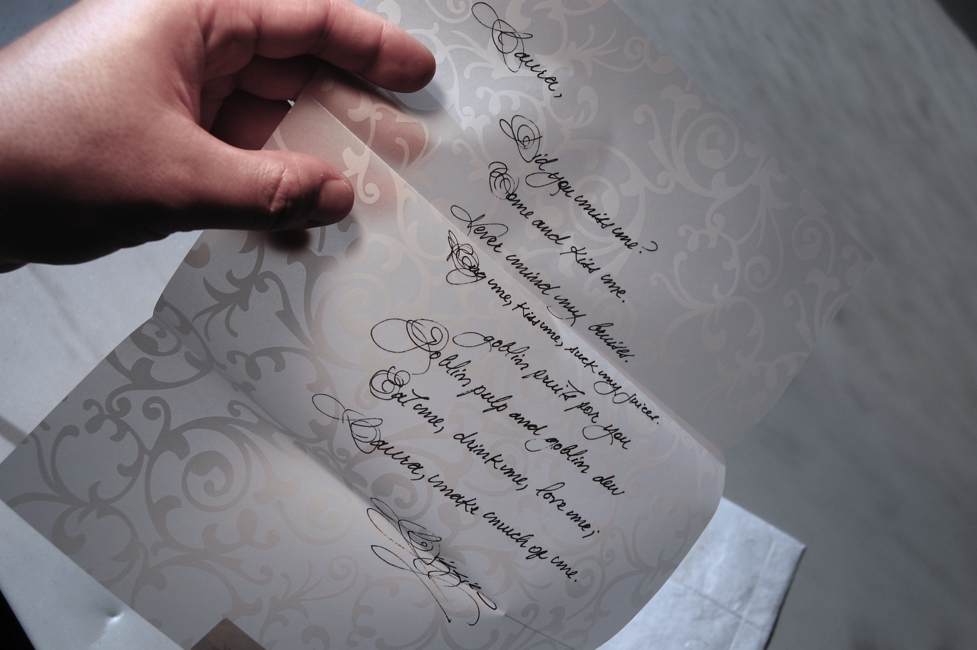 Laura,
Did you miss me?
Come and kiss me.
Never mind my bruises,
Hug me, kiss me, suck my juices.
goblin fruits for you
Goblin pulp and goblin dew
Eat me, drink me, love me;
Laura, make much of me.
Lizzie